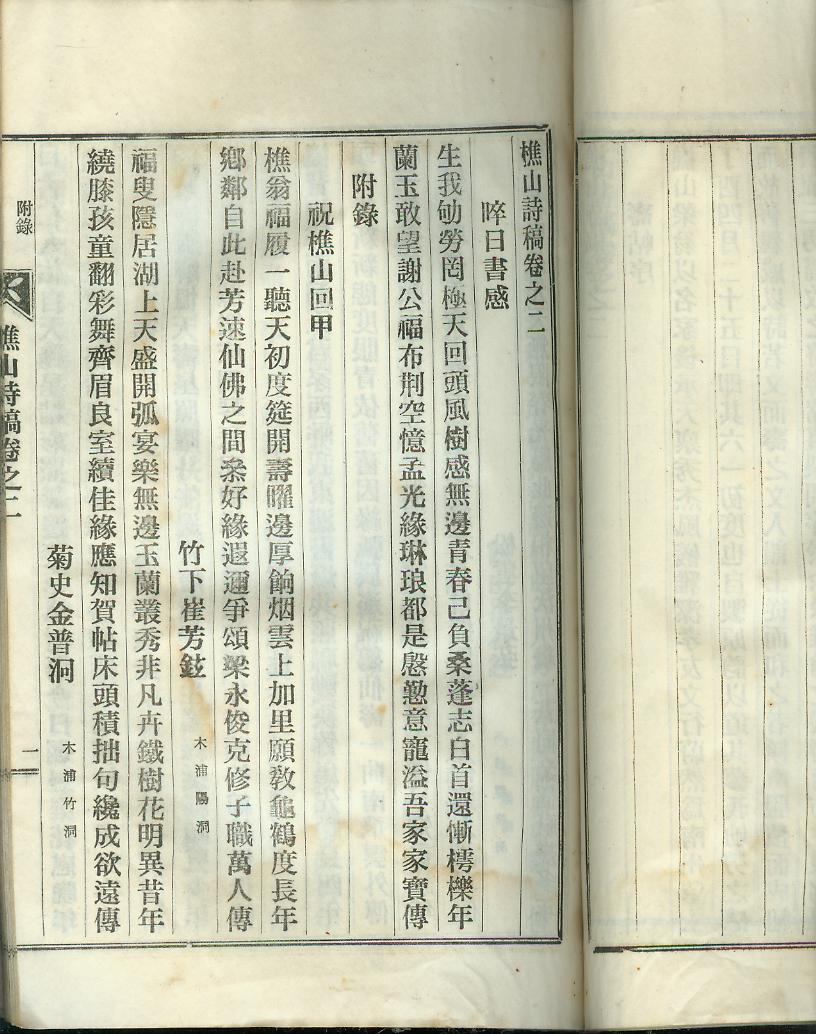 樵山詩稿卷之二
晬日書感
生我劬勞罔極天回頭風樹感無邊青春己負桑蓬志白首還慚樗櫟年
蘭玉敢望謝公福布荆空憶孟光緣琳琅都是慇懃意寵溢吾家家寶傳
附錄
祝樵山回甲
樵翁福履一聽天初度筵開壽曜邊厚餉烟雲上加里願敎龜鶴度長年
鄕鄰自此赴芳速仙佛之間叅好緣遐邇爭頌梁永俊克修子職萬人傳
竹下崔芳鉉 木浦陽洞
福叟隱居湖上天盛開弧宴樂無邊玉蘭叢秀非凡卉鐵樹花明異昔年
繞膝孩童翻彩舞齊眉良室續佳緣應知賀帖床頭積拙句纔成欲遠傳
菊史金普洞 木浦竹洞
附錄
樵山詩稿卷之二
一